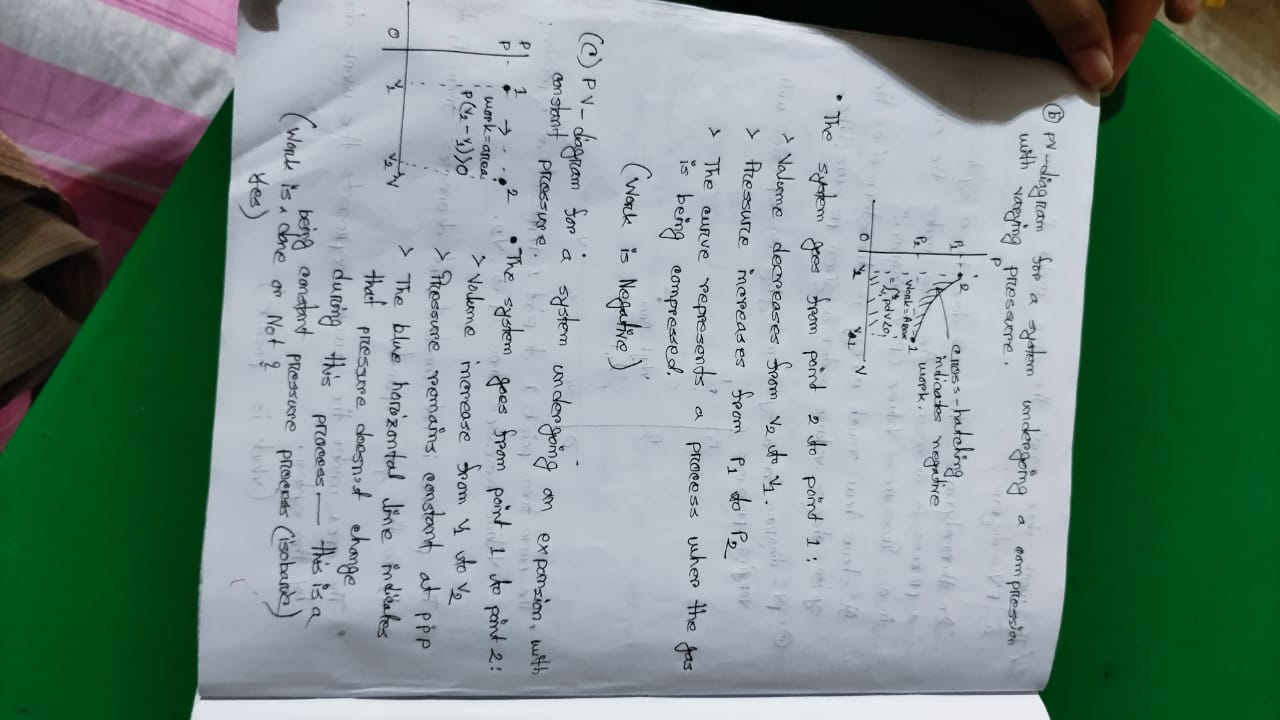 (b) PV-diagram for a system undergoing a compression
with varying pressure.
P
P2
2
cross-hatching
indicates negative
work.
1
Work = Area
0
V2
V
• The system goes from point 2 to point 1:
> Volume decreases from V2 to V1.
> Pressure increases from P1 to P2
> The curve represents a process where the gas
is being compressed.
(Work is Negative)
(c) PV-diagram for a system undergoing an expansion with
constant pressure.
P
P
1
→
2
Work = area
P(V2 - V1)>0
0
V1
V2
V
• The system goes from point 1 to point 2:
> Volume increase from V1 to V2
> Pressure remains constant at PPP
> The blue horizontal line indicates
that pressure doesnot change
during this process — this is a
constant pressure process (isobaric)
(Work is being done or Not?
Yes)